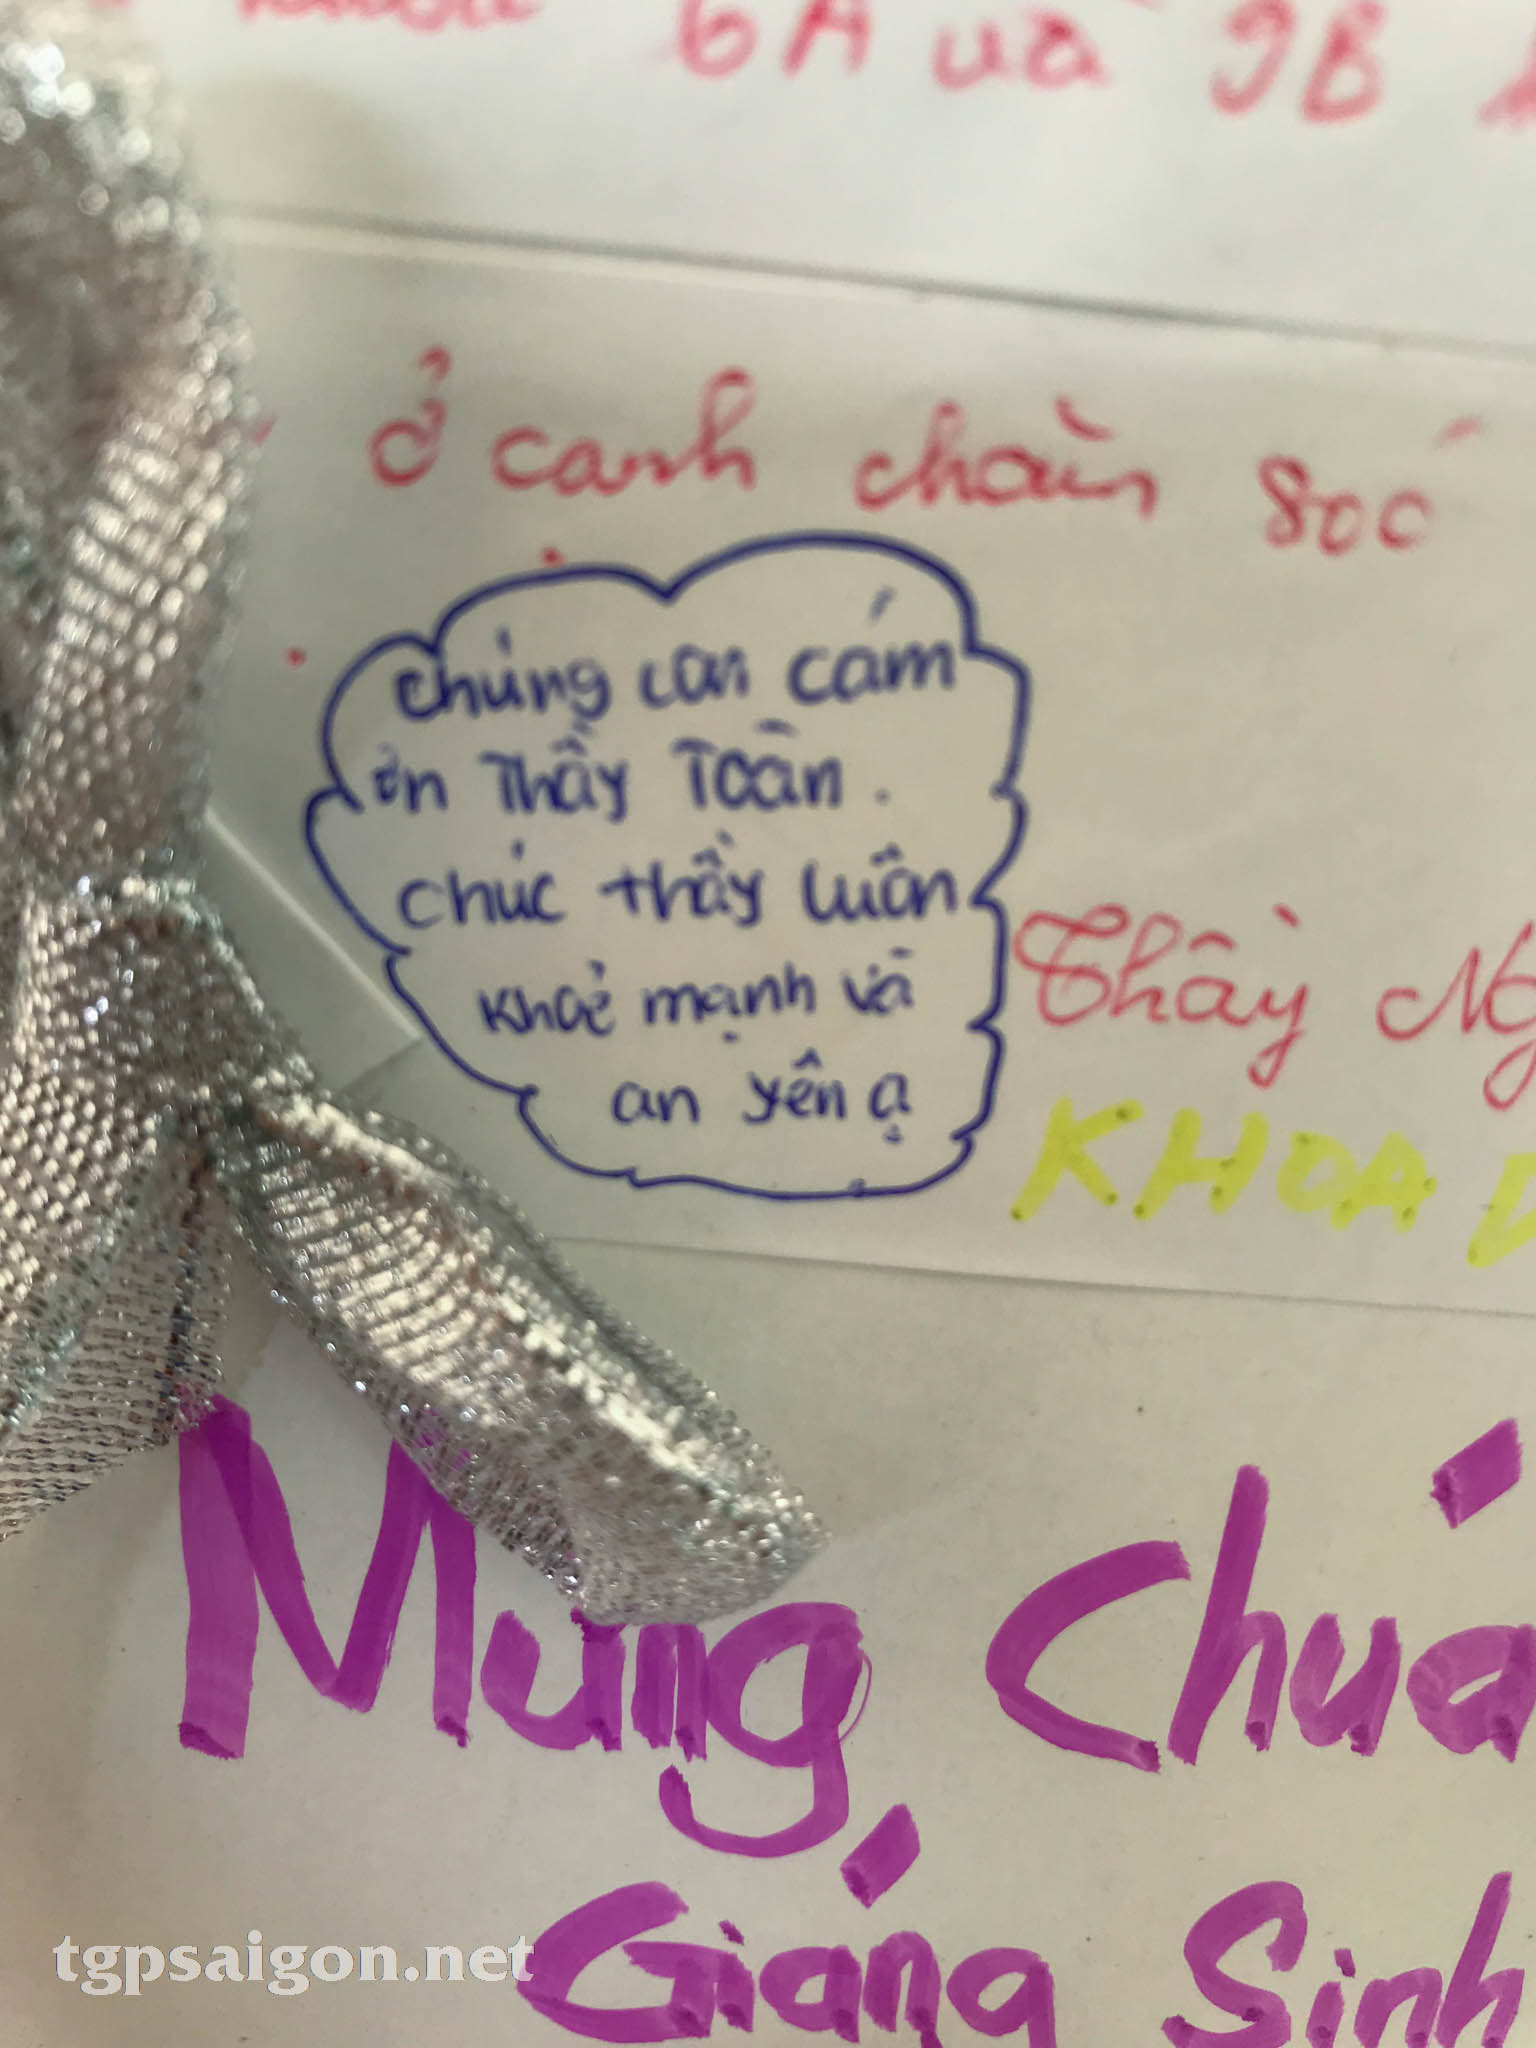 6A và 9B
ở cạnh chăm sóc
chúng con cám
ơn Thầy Toàn.
chúc thầy luôn
khoẻ mạnh và
an yên ạ
Thầy
KHOA
Mừng Chúa
Giáng Sinh
tgpsaigon.net